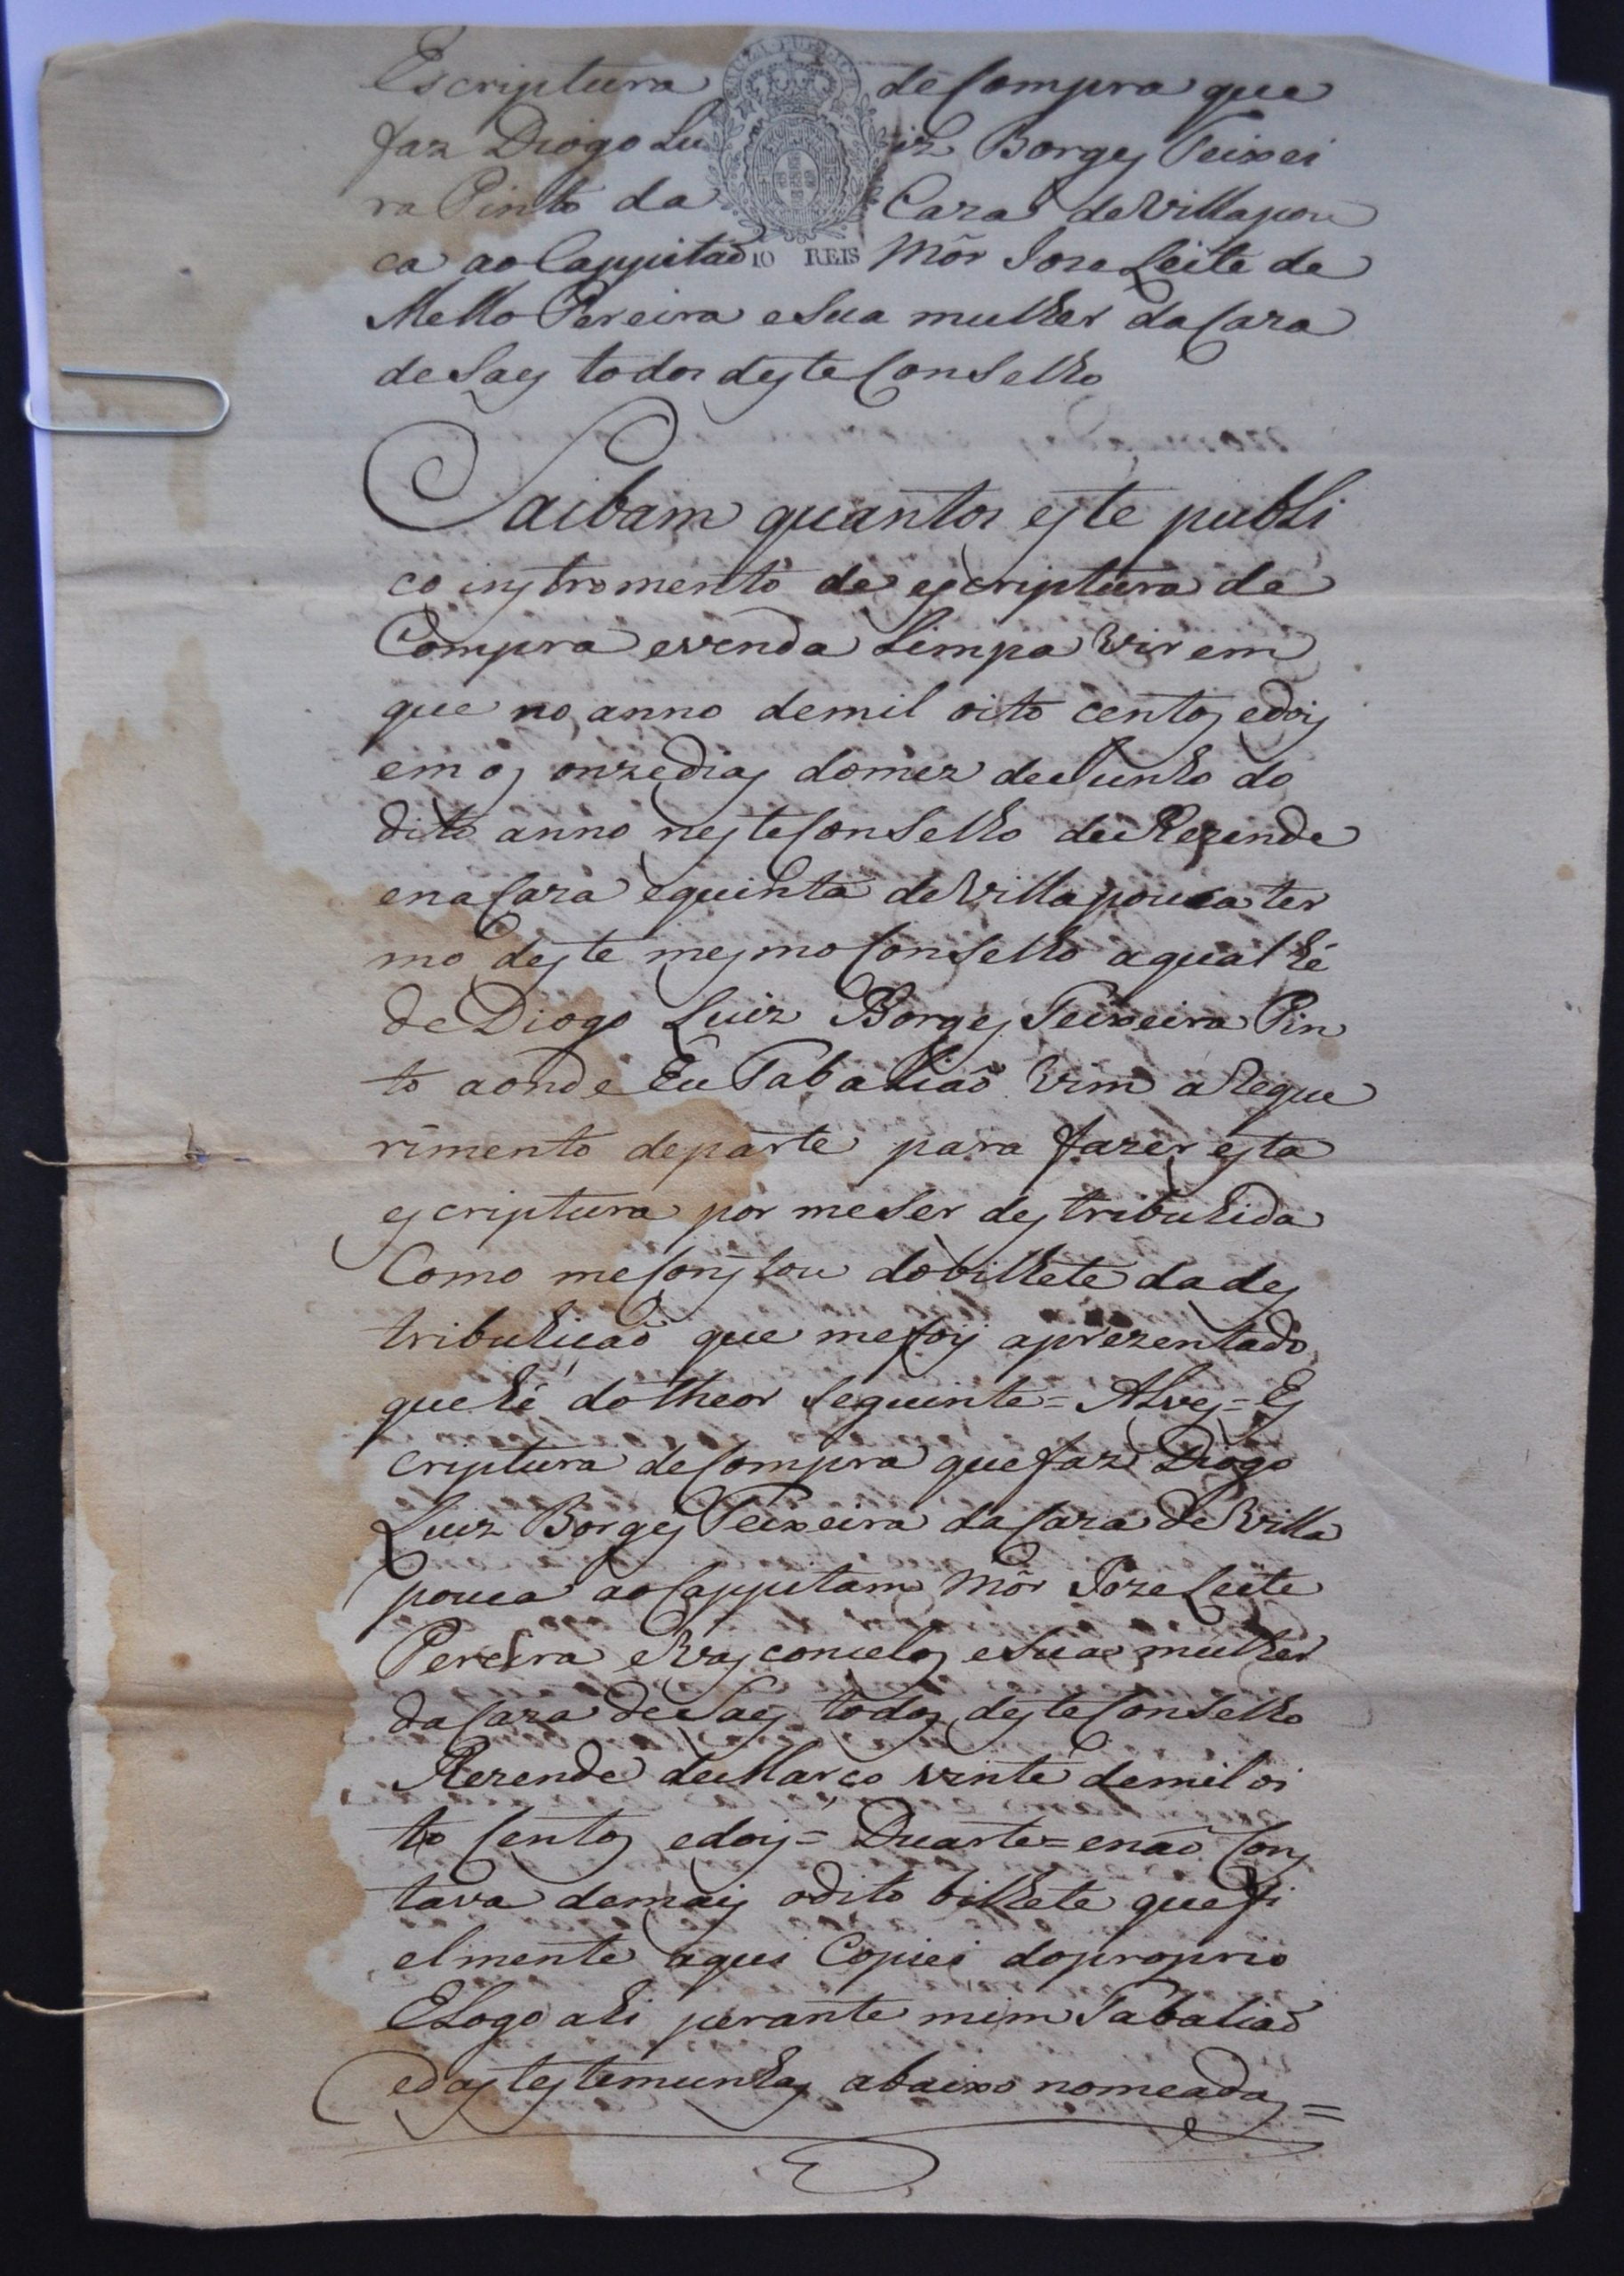 Escriptura de Compra que
faz Diogo Luiz Borges Teixei
ra Pinto da Caza de Villapou
ca ao Cappitaõ Mõr Joze Leite de
Mello Pereira e Sua mulher da Caza
de Saes todos deste Conselho
10 REIS
Saibam quantos este publi
co instromento de escriptura de
Compra e venda Limpa virem
que no anno de mil oito centos e dois
em os onze dias do mez de Junho do
dito anno neste Conselho de Rezende
e na Caza e quinta de Villapouca ter
mo deste mesmo Conselho a qual hé
de Diogo Luiz Borges Teixeira Pin
to aonde Eu Tabaliaõ vim a Reque
rimento de parte para fazer esta
escriptura por me Ser destribuhida
Como me Constou do bilhete da des
tribuhiçaõ que me foy aprezentado
que hé do theor Seguinte = Alves = Es
criptura de Compra que faz Diogo
Luiz Borges Teixeira da Caza de Villa
pouca ao Cappitam Mõr Joze Leite
Pereira e Vasconcelos e Sua mulher
da Caza de Saes todos deste Conselho
Rezende de Março vinte de mil oi
to Centos e dois = Duarte = e naõ Cons
tava de mais o dito bilhete que fi
elmente aqui Copiei do proprio
E Logo ahi perante mim Tabaliaõ
e das testemunhas abaixo nomeadas =